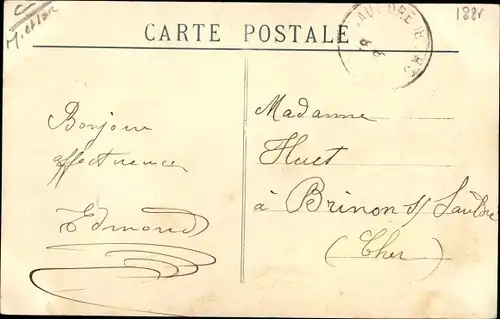 CARTE POSTALE
Bonjour
affectueux
Edmond
Madame
Huet
à Brinon s/ Sauldre
(Cher)